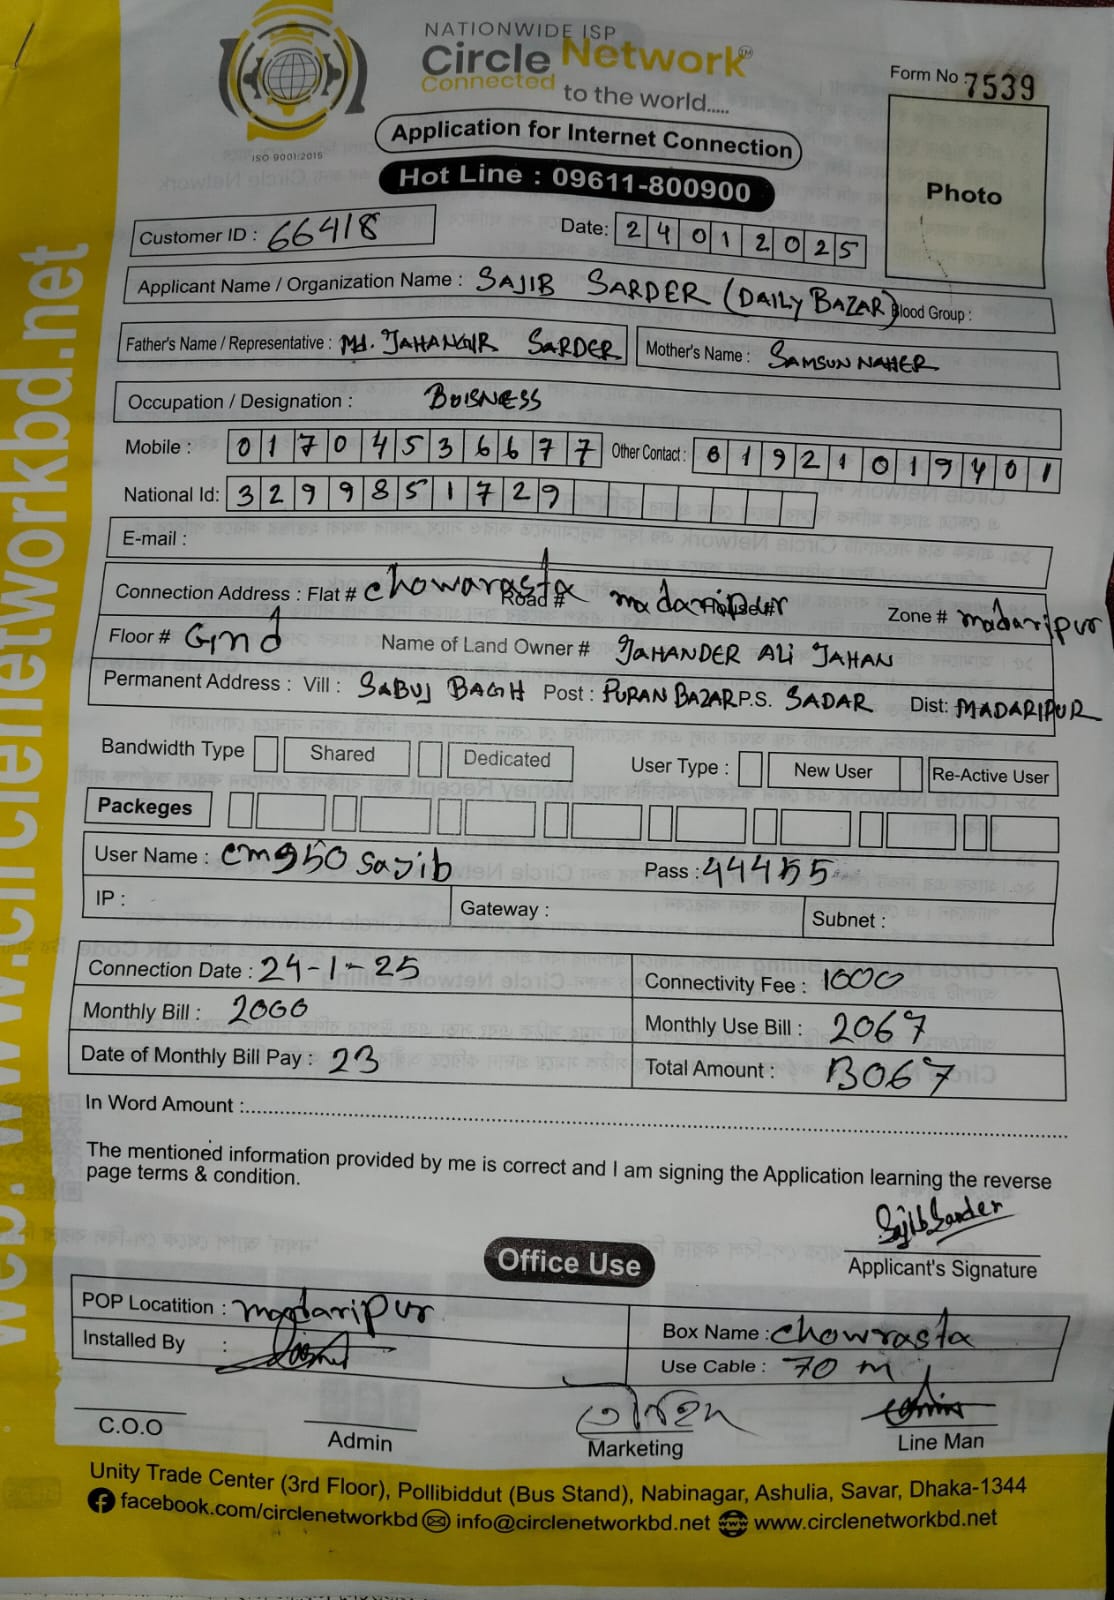 NATIONWIDE ISP
Circle Network TM
Connected to the world.....
ISO 9001:2015
Form No 7539
Application for Internet Connection
Hot Line : 09611-800900
Photo
Customer ID : 66418
Date: 24012025
Applicant Name / Organization Name : SAJIB SARDER (DAILY BAZAR) Blood Group :
Father's Name / Representative : Md. JAHANGIR SARDER Mother's Name : SAMSUN NAHER
Occupation / Designation : BUISNESS
Mobile : 01704536677 Other Contact : 01921019401
National Id: 3299851729
E-mail :
Connection Address : Flat # chowarasta Road # madaripur House # Zone # madaripur
Floor # Gnd Name of Land Owner # JAHANDER ALI JAHAN
Permanent Address : Vill : SABUJ BAGH Post : PURAN BAZAR P.S. SADAR Dist: MADARIPUR
Bandwidth Type Shared Dedicated User Type : New User Re-Active User
Packeges
User Name : cm950sajib Pass : 44455
IP : Gateway : Subnet :
Connection Date : 24-1-25 Connectivity Fee : 1000
Monthly Bill : 2000 Monthly Use Bill : 2067
Date of Monthly Bill Pay : 23 Total Amount : 3067
In Word Amount :
The mentioned information provided by me is correct and I am signing the Application learning the reverse
page terms & condition.
Sajib Sarder
Applicant's Signature
Office Use
POP Locatition : madaripur Box Name : chowrasta
Installed By : Use Cable : 70 m
C.O.O Admin Marketing Line Man
Unity Trade Center (3rd Floor), Pollibiddut (Bus Stand), Nabinagar, Ashulia, Savar, Dhaka-1344
facebook.com/circlenetworkbd info@circlenetworkbd.net www.circlenetworkbd.net
web: www.circlenetworkbd.net